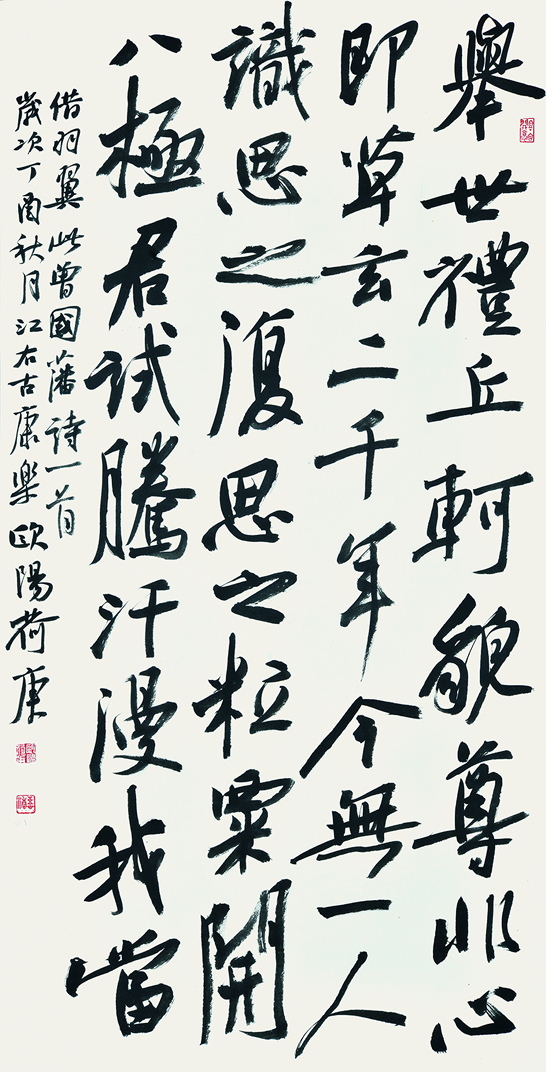 舉世禮丘軻貌尊非心
即草玄二千年今無一人
識思之復思之粒粟開
八極君試騰汗漫我當
借羽翼此曾國藩詩一首
歲次丁酉秋月江右古康樂歐陽荷庚